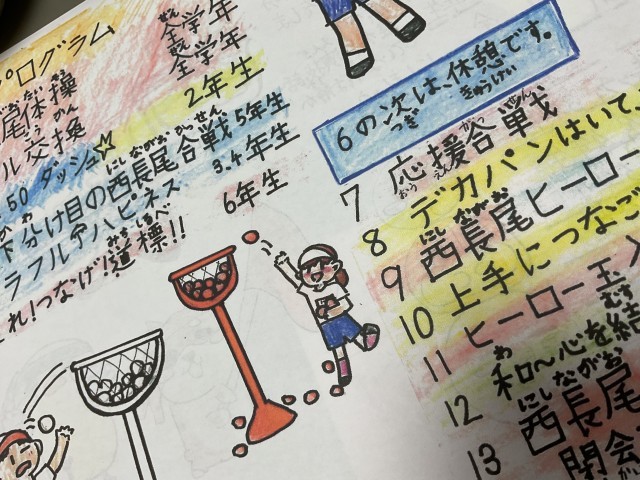 プログラム
全学年
尾体操 全学年
ル交換 2年生
50 ダッシュ☆ 5年生
下分け目の西長尾合戦 3.4年生
ラフル♡ハピネス 6年生
れ！つなげ！道標!!
6の次は、休憩です。
7 応援合戦
8 デカパンはいて
9 西長尾ヒーロー
10 上手につなご
11 ヒーロー玉
12 和〜心を結
13 西長尾
閉会